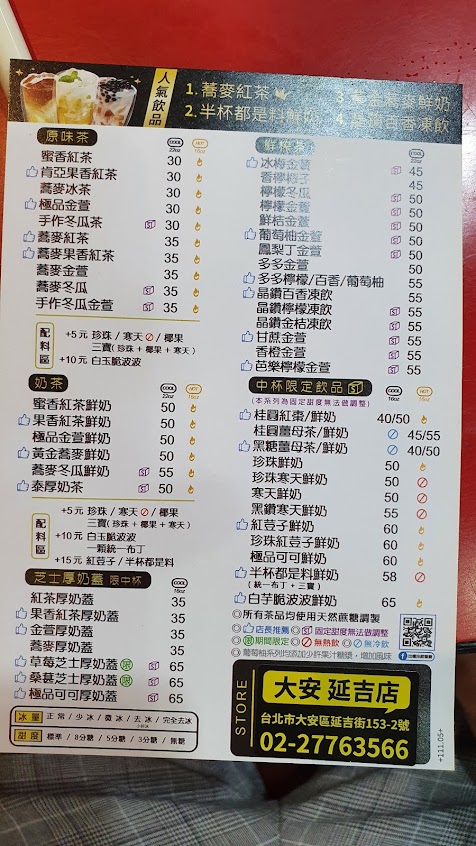 人氣飲品
1. 蕎麥紅茶
2. 半杯都是料鮮奶
3.
4. 晶鑽百香凍飲
原味茶 COOL 22oz HOT 16oz
蜜香紅茶 30
肯亞果香紅茶 30
蕎麥冰茶 30
極品金萱 30
手作冬瓜茶 固 30
蕎麥紅茶 35
蕎麥果香紅茶 35
蕎麥金萱 35
蕎麥冬瓜 固 35
手作冬瓜金萱 固 35
配料區
+5元 珍珠 / 寒天 / 椰果
三寶( 珍珠 + 椰果 + 寒天 )
+10元 白玉脆波波
奶茶 COOL 22oz HOT 16oz
蜜香紅茶鮮奶 50
果香紅茶鮮奶 50
極品金萱鮮奶 50
黃金蕎麥鮮奶 50
蕎麥冬瓜鮮奶 固 55
泰厚奶茶 固 50
配料區
+5元 珍珠 / 寒天 / 椰果
三寶( 珍珠 + 椰果 + 寒天 )
+10元 白玉脆波波
一顆統一布丁
+15元 紅荳子 / 半杯都是料
芝士厚奶蓋 限中杯 COOL 16oz
紅茶厚奶蓋 35
果香紅茶厚奶蓋 35
金萱厚奶蓋 35
蕎麥厚奶蓋 35
草莓芝士厚奶蓋 限 固 65
桑葚芝士厚奶蓋 限 固 65
極品可可厚奶蓋 固 65
冰量 正常 / 少冰 / 微冰 / 去冰 / 完全去冰
甜度 標準 / 8分糖 / 5分糖 / 3分糖 / 無糖
鮮榨茶 COOL 22oz
冰梅金萱 固 45
香檸梅子 45
檸檬冬瓜 45
檸檬金萱 固 50
鮮桔金萱 固 50
葡萄柚金萱 固 50
鳳梨丁金萱 固 50
多多金萱 50
多多檸檬/百香/葡萄柚 55
晶鑽百香凍飲 55
晶鑽檸檬凍飲 固 55
晶鑽金桔凍飲 固 55
甘蔗金萱 固 55
香橙金萱 固 55
芭樂檸檬金萱 固 55
中杯限定飲品 固 COOL 16oz HOT 16oz
(本系列為固定甜度無法做調整)
桂圓紅棗/鮮奶 40/50
桂圓薑母茶/鮮奶 45/55
黑糖薑母茶/鮮奶 40/50
珍珠鮮奶 50
珍珠寒天鮮奶 50
寒天鮮奶 50
黑鑽寒天鮮奶 55
紅荳子鮮奶 60
珍珠紅荳子鮮奶 60
極品可可鮮奶 60
半杯都是料鮮奶 58
( 統一布丁 + 三寶 )
白芋脆波波鮮奶 65
◎所有茶品均使用天然蔗糖調製
◎店長推薦 ◎固 固定甜度無法做調整
◎限 期間限定 ◎無熱飲 ◎無冷飲
◎葡萄柚系列均添加少許果汁糖漿，增加風味
STORE
大安 延吉店
台北市大安區延吉街153-2號
02-27763566
+111.05+